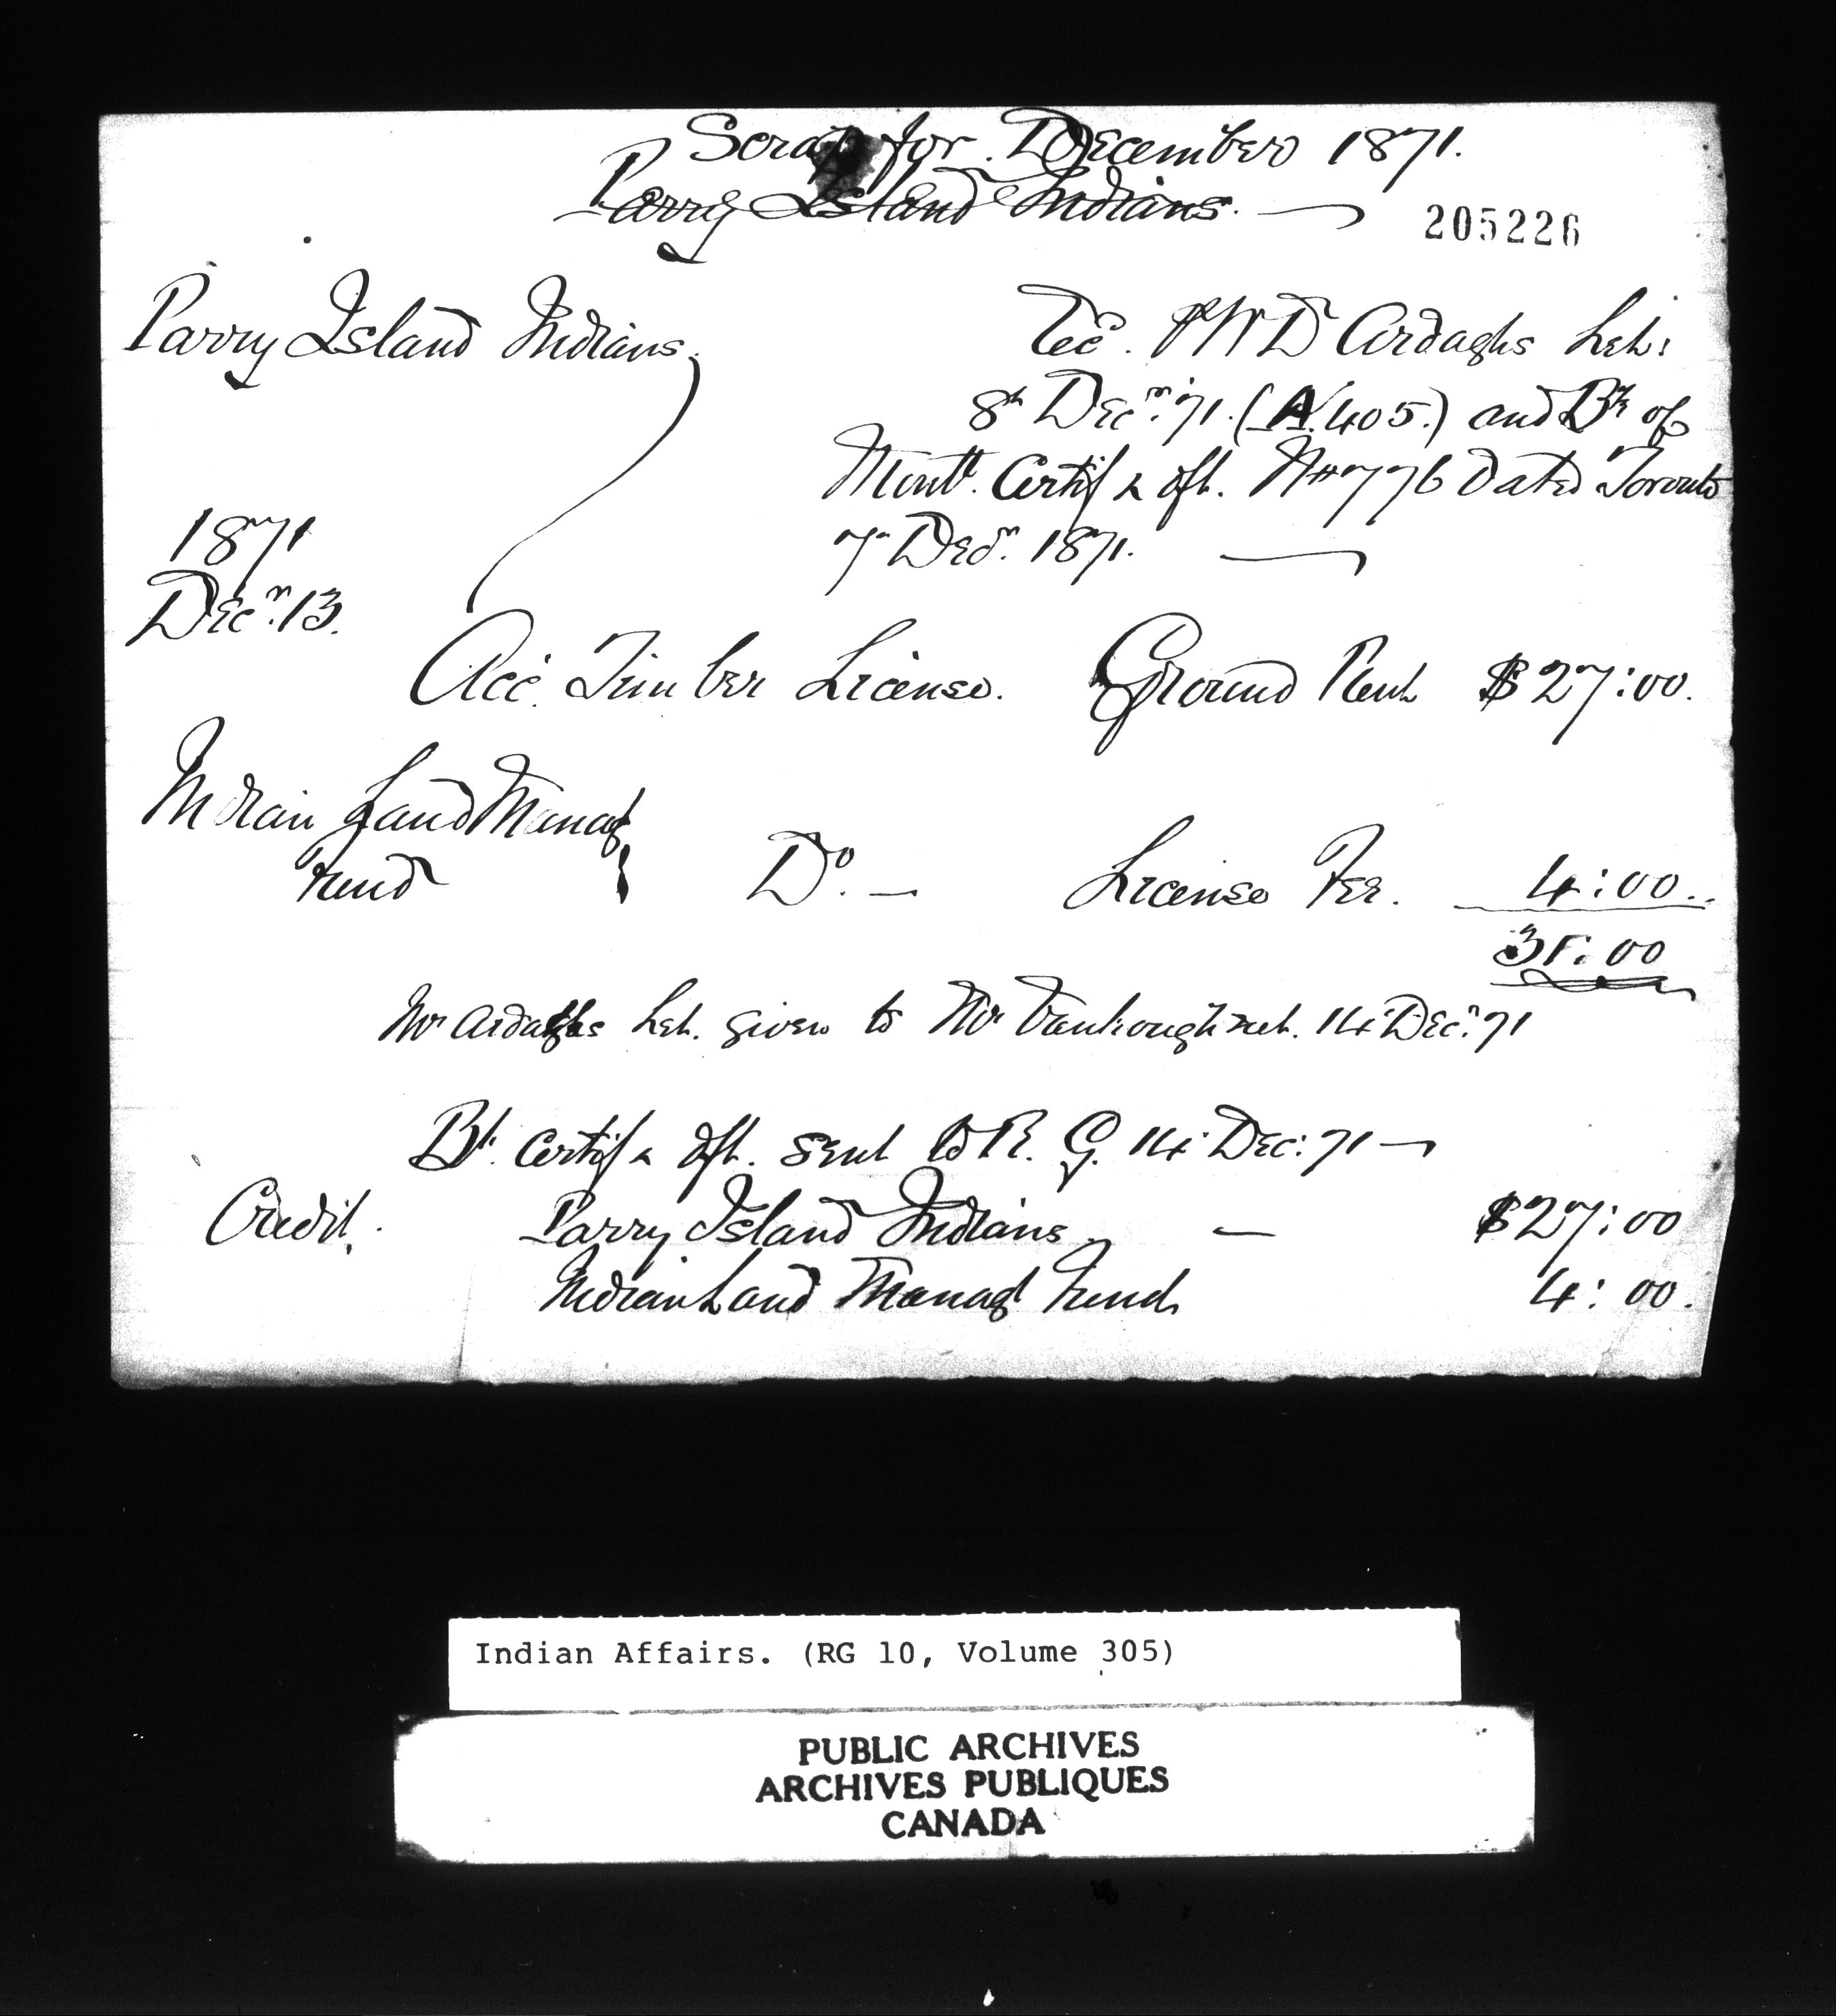 Scrap for December 1871.
Parry Island Indians. —
205226
Parry Island Indians.
Rec. W D Ardaghs Let:
8th Decr. 71. (A.405.) and Bk of
Montl. Certif & dft. No 776 dated Toronto
7 Decr. 1871. —
1871
Decr. 13.
Acc. Timber License. Ground Rent $27:00.
Indian Land Managt
Fund } Do. — License Fee. 4:00..
31:00
Mr Ardaghs Let. given to Mr Vankoughnet. 14 Decr. 71
Bk. Certif & dft. sent to R. G. 14 Dec: 71 —
Credit. Parry Island Indians — $27:00
Indian Land Managt Fund. 4:00.
Indian Affairs. (RG 10, Volume 305)
PUBLIC ARCHIVES
ARCHIVES PUBLIQUES
CANADA